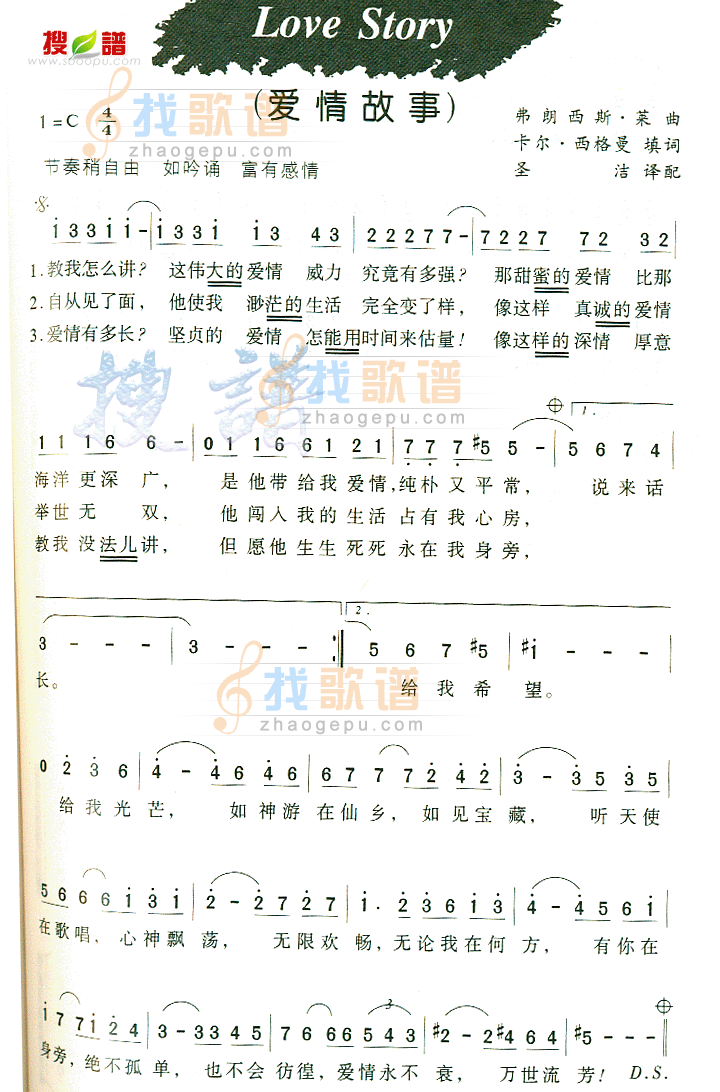 Love Story
搜谱
www.sooopu.com
(爱情故事)
1=C 4/4
找歌谱
zhaogepu.com
弗朗西斯·莱 曲
卡尔·西格曼 填词
圣 洁 译配
节奏稍自由 如吟诵 富有感情
1 3 3 1 1 - 1 3 3 1 3 1 3 4 3 2 2 2 2 7 7 - 7 2 2 7 2 7 7 2 3 2
1.教我怎么讲? 这伟大的爱情 威力 究竟有多强? 那甜蜜的爱情 比那
2.自从见了面, 他使我 渺茫的生活 完全变了样, 像这样 真诚的爱情
3.爱情有多长? 坚贞的 爱情 怎能用时间来估量! 像这样的深情 厚意
搜谱
找歌谱
zhaogepu.com
1.
1 1 1 6 6 - 0 1 1 6 6 1 2 1 7 7 7 #5 5 - 5 6 7 4
海洋更深广, 是他带给我爱情,纯朴又平常, 说来话
举世无双, 他闯入我的生活占有我心房,
教我没法儿讲, 但愿他生生死死永在我身旁,
2.
3 - - - 3 - - - 5 6 7 #5 #1 - - -
长。 给我希望。
找歌谱
zhaogepu.com
0 2 3 6 4 - 4 6 4 6 6 7 7 7 2 4 2 3 - 3 5 3 5
给我光芒, 如神游在仙乡,如见宝藏, 听天使
5 6 6 6 6 1 3 1 2 - 2 7 2 7 1 . 2 3 6 1 3 4 - 4 5 6 1
在歌唱,心神飘荡, 无限欢畅,无论我在何方, 有你在
1 7 7 1 2 4 3 - 3 3 4 5 7 6 6 5 4 3 #2 - 2 #1 2 4 5 #5 - - -
3
身旁,绝不孤单, 也不会彷徨,爱情永不衰, 万世流芳! D.S.
找歌谱
zhaogepu.com